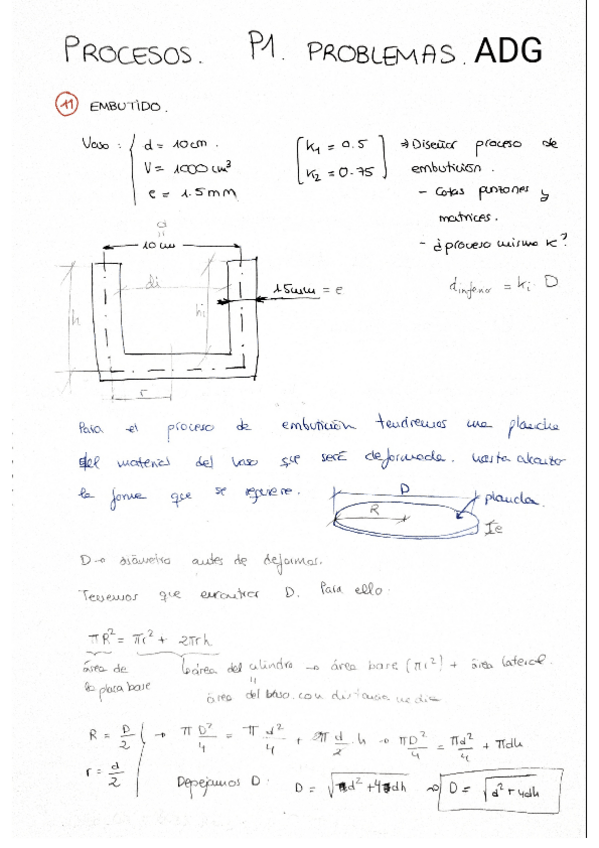 PROCESOS. P1. PROBLEMAS. ADG
11 EMBUTIDO.
Vaso: d = 10cm.
V = 1000 cm³
e = 1.5mm
K1 = 0.5
K2 = 0.75
⇒ Diseñar proceso de embutición.
- Cotas punzones y matrices.
- ¿proceso mismo K?
d
10 cm
di
h
hi
r
1'5mm = e
d inferior = Ki · D
Para el proceso de embutición tendremos una plancha
del material del vaso que será deformada hasta alcanzar
la forma que se requiere.
D
R
plancha.
e
D → diámetro antes de deformar.
Tenemos que encontrar D. Para ello:
πR² = πr² + 2πrh
área de la placa base
área del cilindro → área base (πr²) + área lateral.
área del vaso con distancia media
R = D/2
r = d/2
→ π D²/4 = π d²/4 + 2π d/2 · h → πD²/4 = πd²/4 + πdh
Despejamos D: D = √d²+4dh → D = √d²+4dh